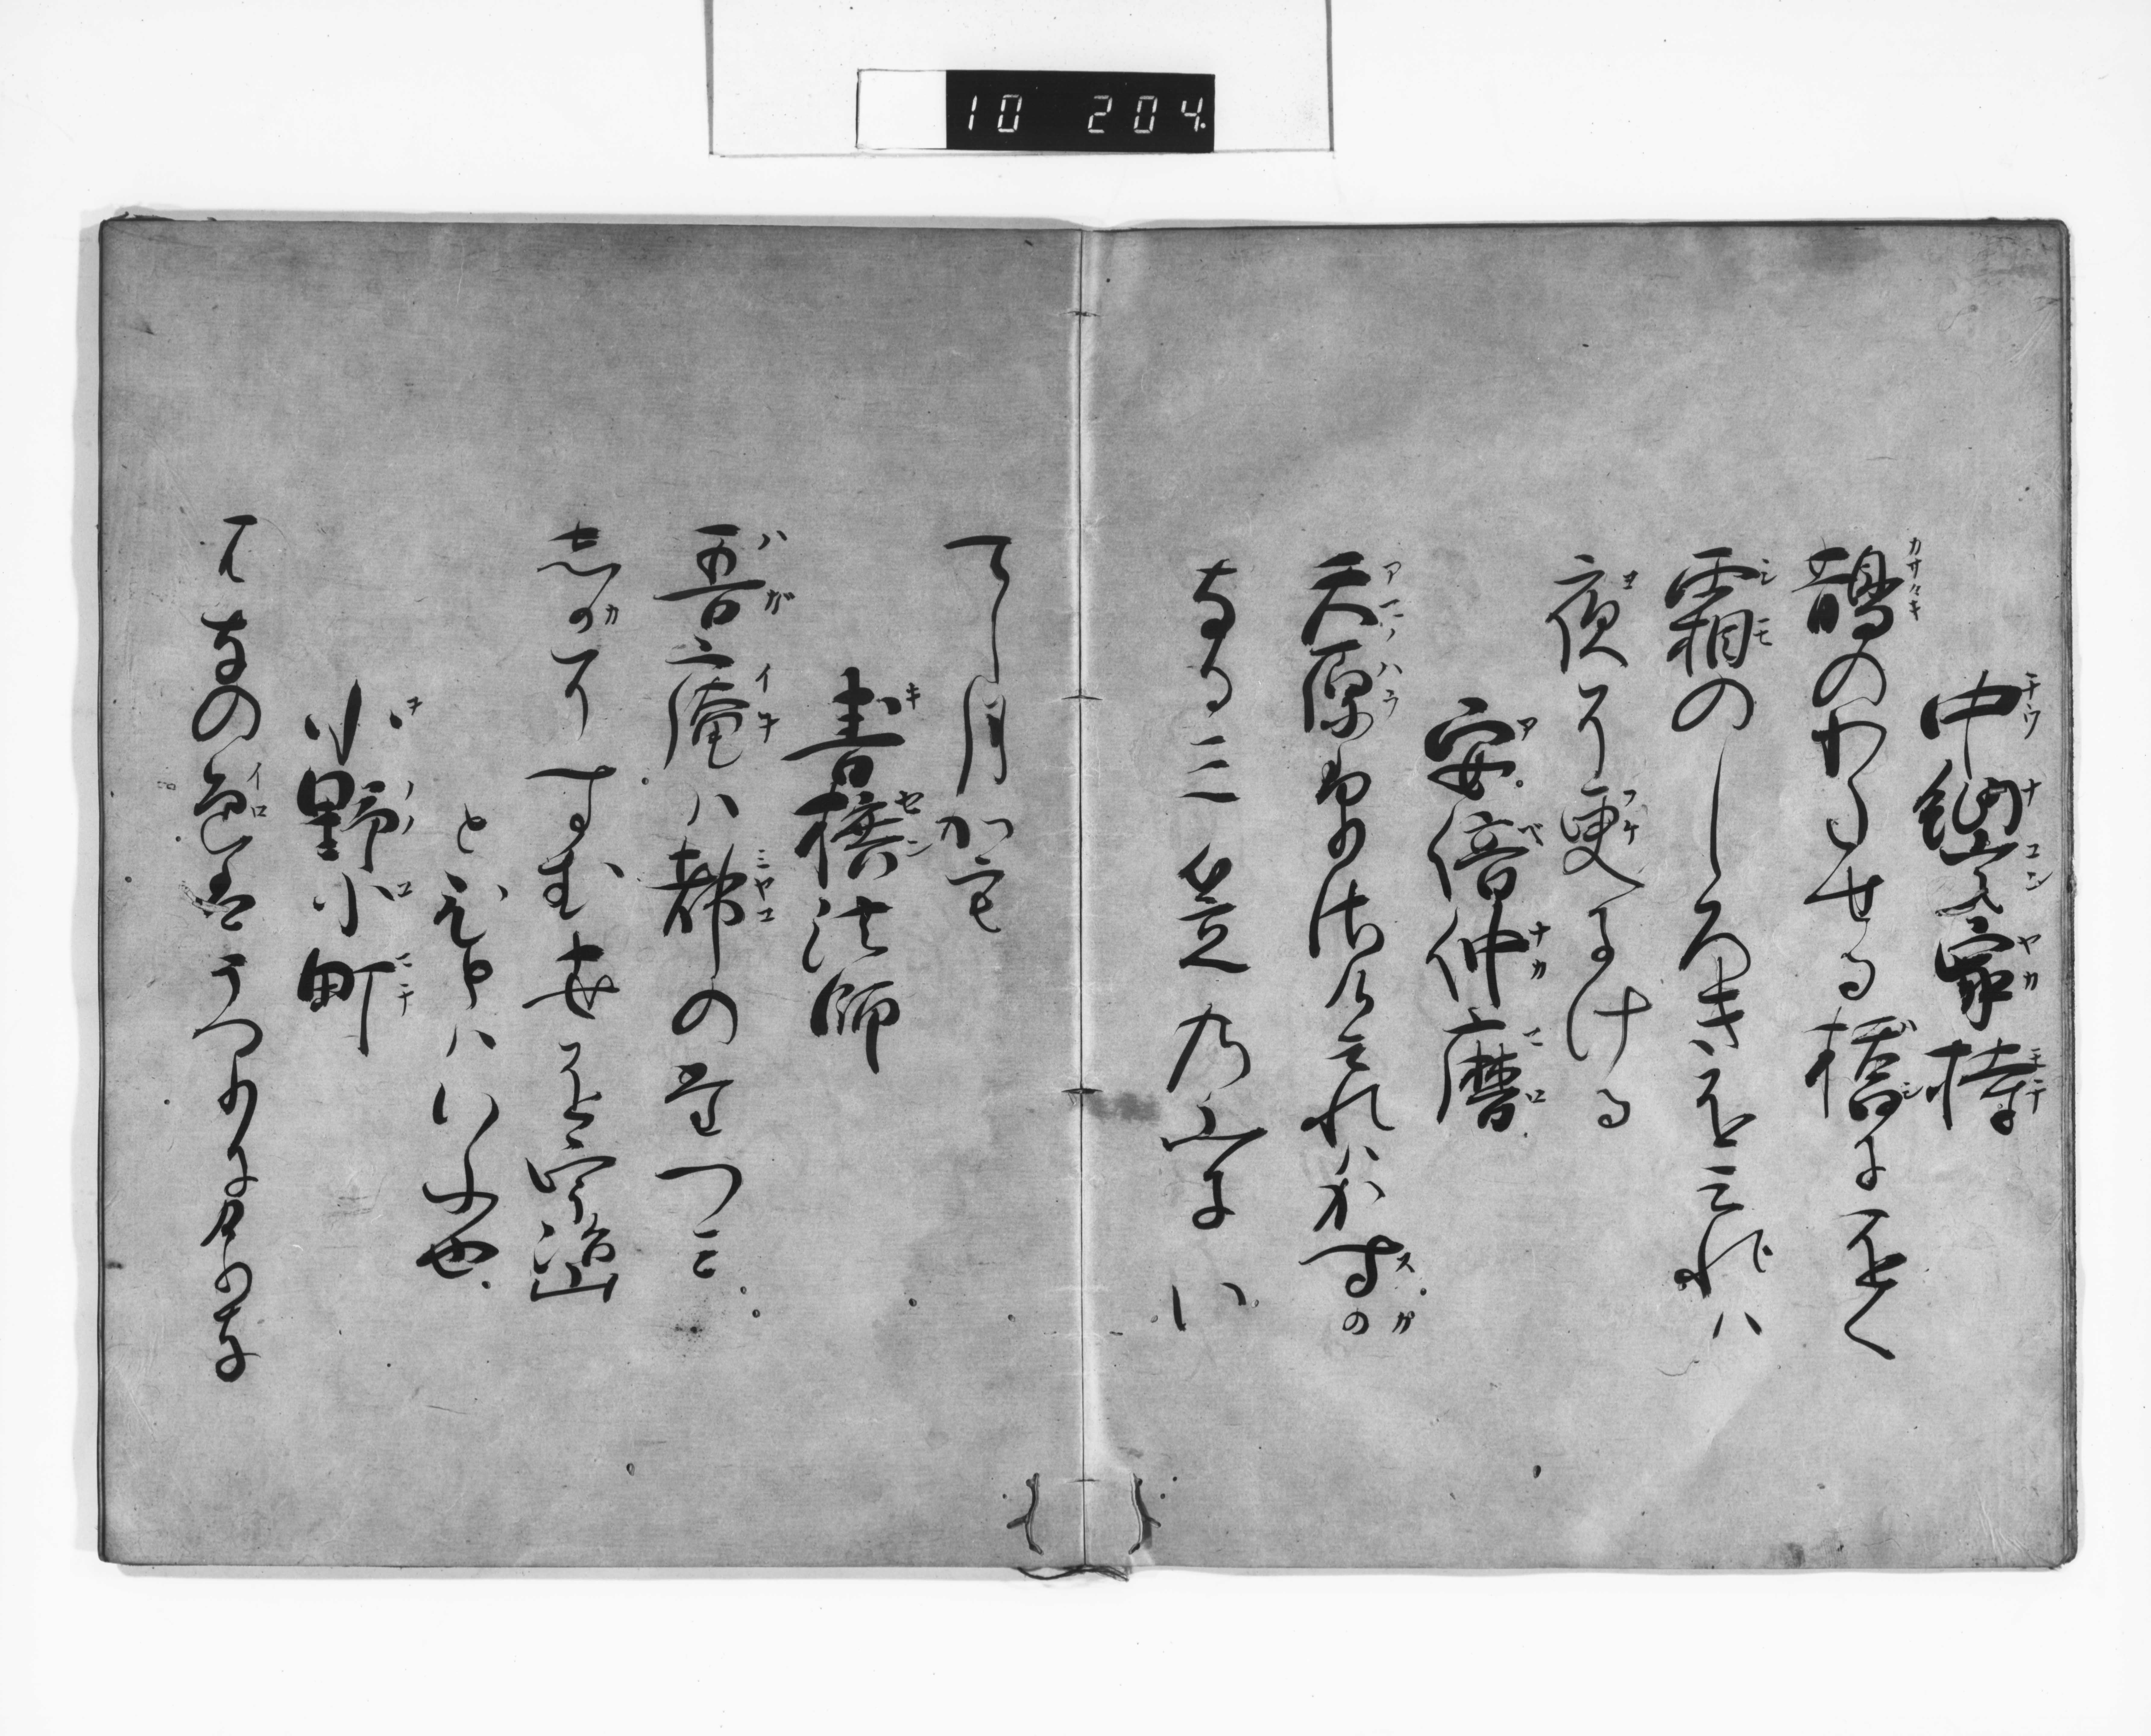 10 204
中納言家持
鵲のわたせる橋にをく
霜のしろきをみれハ
夜そ更にける
安倍仲麿
天原ふりさけみれはかすの
なる三笠乃山にい
てし月かも
喜撰法師
吾庵ハ都のたつミ
しかそすむ世を宇治山
と人ハいふ也
小野小町
はなの色はうつりにけりな